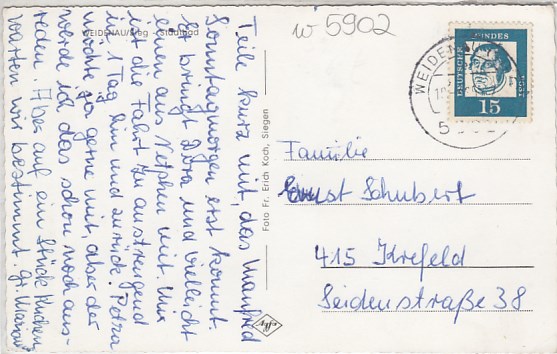 w 5902
WEIDENAU/Sieg Stadtbad
Teile kurz mit, das Manfred
Sonntagmorgen erst kommt.
Er bringt Dora und vielleicht
einen aus Netphen mit. Uns
ist die Fahrt zu anstrengend
in 1 Tag hin und zurück. Petra
möchte ja gerne mit, aber der
werde ich das schon noch aus-
reden. Also auf ein Stück Kuchen
warten wir bestimmt. Gr.
Foto Fr. Erich Koch, Siegen
Agfa
WEIDENAU
DEUTSCHE BUNDESPOST
15
Familie
Ernst Schubert
415 Krefeld
Seidenstraße 38